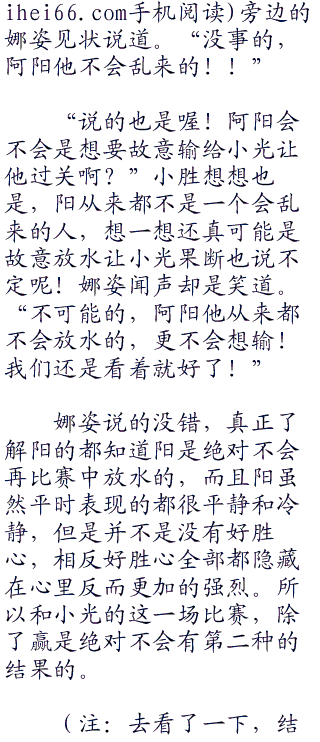 ihei66.com手机阅读)旁边的
娜姿见状说道。“没事的，
阿阳他不会乱来的！！”
“说的也是喔！阿阳会
不会是想要故意输给小光让
他过关啊？”小胜想想也
是，阳从来都不是一个会乱
来的人，想一想还真可能是
故意放水让小光果断也说不
定呢！娜姿闻声却是笑道。
“不可能的，阿阳他从来都
不会放水的，更不会想输！
我们还是看着就好了！”
娜姿说的没错，真正了
解阳的都知道阳是绝对不会
再比赛中放水的，而且阳虽
然平时表现的都很平静和冷
静，但是并不是没有好胜
心，相反好胜心全部都隐藏
在心里反而更加的强烈。所
以和小光的这一场比赛，除
了赢是绝对不会有第二种的
结果的。
（注：去看了一下，结